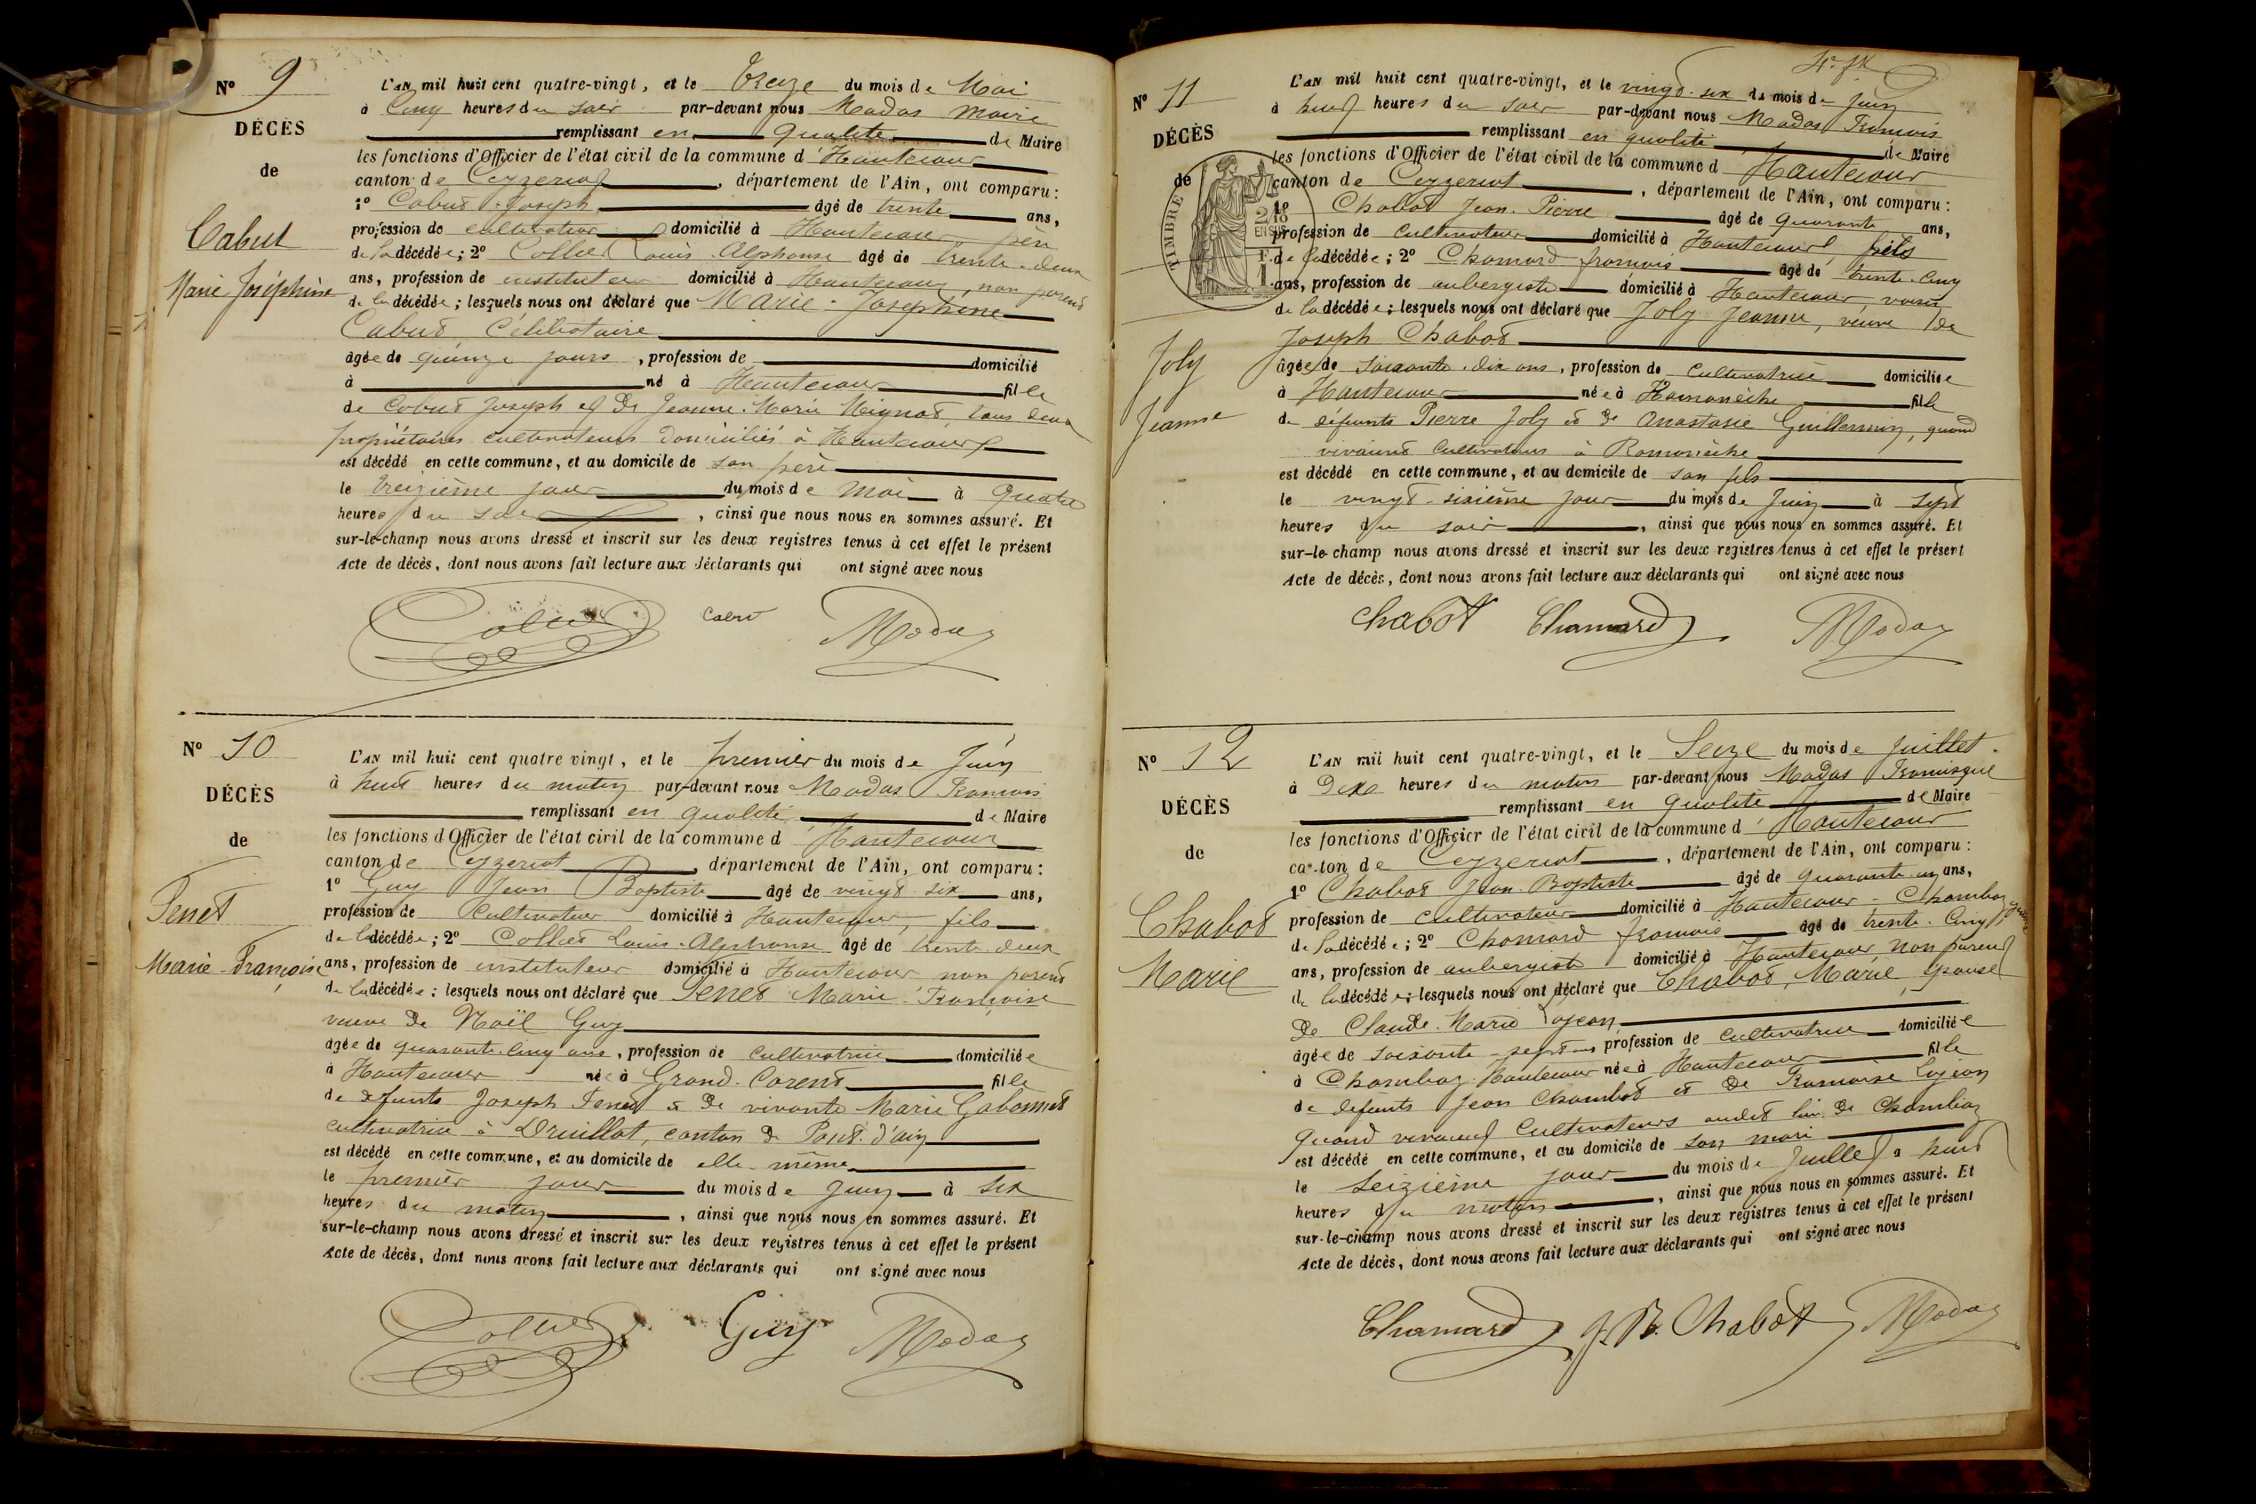 Nº 9
DÉCÈS
de
Cabut
Marie Joséphine
L'AN mil huit cent quatre-vingt, et le Treize du mois de Mai
à Cinq heures du soir par-devant nous Modas Maire
remplissant en qualité de Maire
les fonctions d'Officier de l'état civil de la commune d'Hautecour
canton de Ceyzeriat, département de l'Ain, ont comparu :
1º Cabut Joseph âgé de trente ans,
profession de cultivateur domicilié à Hautecour père
de la décédée ; 2º Collet Louis Alphonse âgé de trente-deux
ans, profession de instituteur domicilié à Hautecour, non parent
de la décédée ; lesquels nous ont déclaré que Marie-Joséphine
Cabut Célibataire
âgée de quinze jours, profession de domicilié
à né à Hautecour fille
de Cabut Joseph et de Jeanne-Marie Mignot, tous deux
propriétaires cultivateurs domiciliés à Hautecour
est décédé en cette commune, et au domicile de son père
le treizième jour du mois de Mai à quatre
heures du soir, ainsi que nous nous en sommes assuré. Et
sur-le-champ nous avons dressé et inscrit sur les deux registres tenus à cet effet le présent
Acte de décès, dont nous avons fait lecture aux déclarants qui ont signé avec nous
Collet Modas
Nº 10
DÉCÈS
de
Penet
Marie-Françoise
L'AN mil huit cent quatre vingt, et le premier du mois de Juin
à huit heures du matin par-devant nous Modas François
remplissant en qualité de Maire
les fonctions d'Officier de l'état civil de la commune d'Hautecour
canton de Ceyzeriat, département de l'Ain, ont comparu :
1º Guy Jean Baptiste âgé de vingt-six ans,
profession de Cultivateur domicilié à Hautecour, fils
de la décédée ; 2º Collet Louis-Alphonse âgé de trente-deux
ans, profession de instituteur domicilié à Hautecour non parent
de la décédée ; lesquels nous ont déclaré que Penet Marie-Françoise
veuve de Noël Guy
âgée de quarante-cinq ans, profession de cultivatrice domiciliée
à Hautecour née à Grand-Corent fille
de défunts Joseph Penet & de vivante Marie
cultivatrice à Druillat, canton de Pont-d'ain
est décédé en cette commune, et au domicile de elle-même
le premier jour du mois de Juin à six
heures du matin, ainsi que nous nous en sommes assuré. Et
sur-le-champ nous avons dressé et inscrit sur les deux registres tenus à cet effet le présent
Acte de décès, dont nous avons fait lecture aux déclarants qui ont signé avec nous
Collet Guy Modas
Nº 11
DÉCÈS
de
Joly
Jeanne
TIMBRE
L'AN mil huit cent quatre-vingt, et le vingt-six du mois de Juin
à huit heures du soir par-devant nous Modas François
remplissant en qualité de Maire
les fonctions d'Officier de l'état civil de la commune d'Hautecour
canton de Ceyzeriat, département de l'Ain, ont comparu :
1º Chabot Jean-Pierre âgé de quarante ans,
profession de cultivateur domicilié à Hautecour, fils
de la décédée ; 2º Chamard françois âgé de trente-cinq
ans, profession de aubergiste domicilié à Hautecour voisin
de la décédée ; lesquels nous ont déclaré que Joly Jeanne, veuve de
Joseph Chabot
âgée de soixante-dix ans, profession de cultivatrice domiciliée
à Hautecour née à Romanèche fille
de défunts Pierre Joly et de Anastasie Guillermin, quand
vivaient Cultivateurs à Romanèche
est décédé en cette commune, et au domicile de son fils
le vingt-sixième jour du mois de Juin à sept
heures du soir, ainsi que nous nous en sommes assuré. Et
sur-le-champ nous avons dressé et inscrit sur les deux registres tenus à cet effet le présent
Acte de décès, dont nous avons fait lecture aux déclarants qui ont signé avec nous
Chabot Chamard Modas
Nº 12
DÉCÈS
de
Chabot
Marie
L'AN mil huit cent quatre-vingt, et le Seize du mois de Juillet
à Dix heures du matin par-devant nous Modas Francisque
remplissant en qualité de Maire
les fonctions d'Officier de l'état civil de la commune d'Hautecour
canton de Ceyzeriat, département de l'Ain, ont comparu :
1º Chabot Jean-Baptiste âgé de quarante-un ans,
profession de cultivateur domicilié à Hautecour-Chambod
de la décédée ; 2º Chamard françois âgé de trente-cinq
ans, profession de aubergiste domicilié à Hautecour non parent
de la décédée ; lesquels nous ont déclaré que Chabot, Marie, épouse
de Claude-Marie Pojean
âgée de soixante-sept ans profession de cultivatrice domiciliée
à Chambod-Hautecour née à Hautecour fille
de défunts Jean Chambot et de Françoise
quand vivaient Cultivateurs audit lieu de Chambod
est décédé en cette commune, et au domicile de son mari
le seizième jour du mois de Juillet à huit
heures du matin, ainsi que nous nous en sommes assuré. Et
sur-le-champ nous avons dressé et inscrit sur les deux registres tenus à cet effet le présent
Acte de décès, dont nous avons fait lecture aux déclarants qui ont signé avec nous
Chamard J. B. Chabot Modas